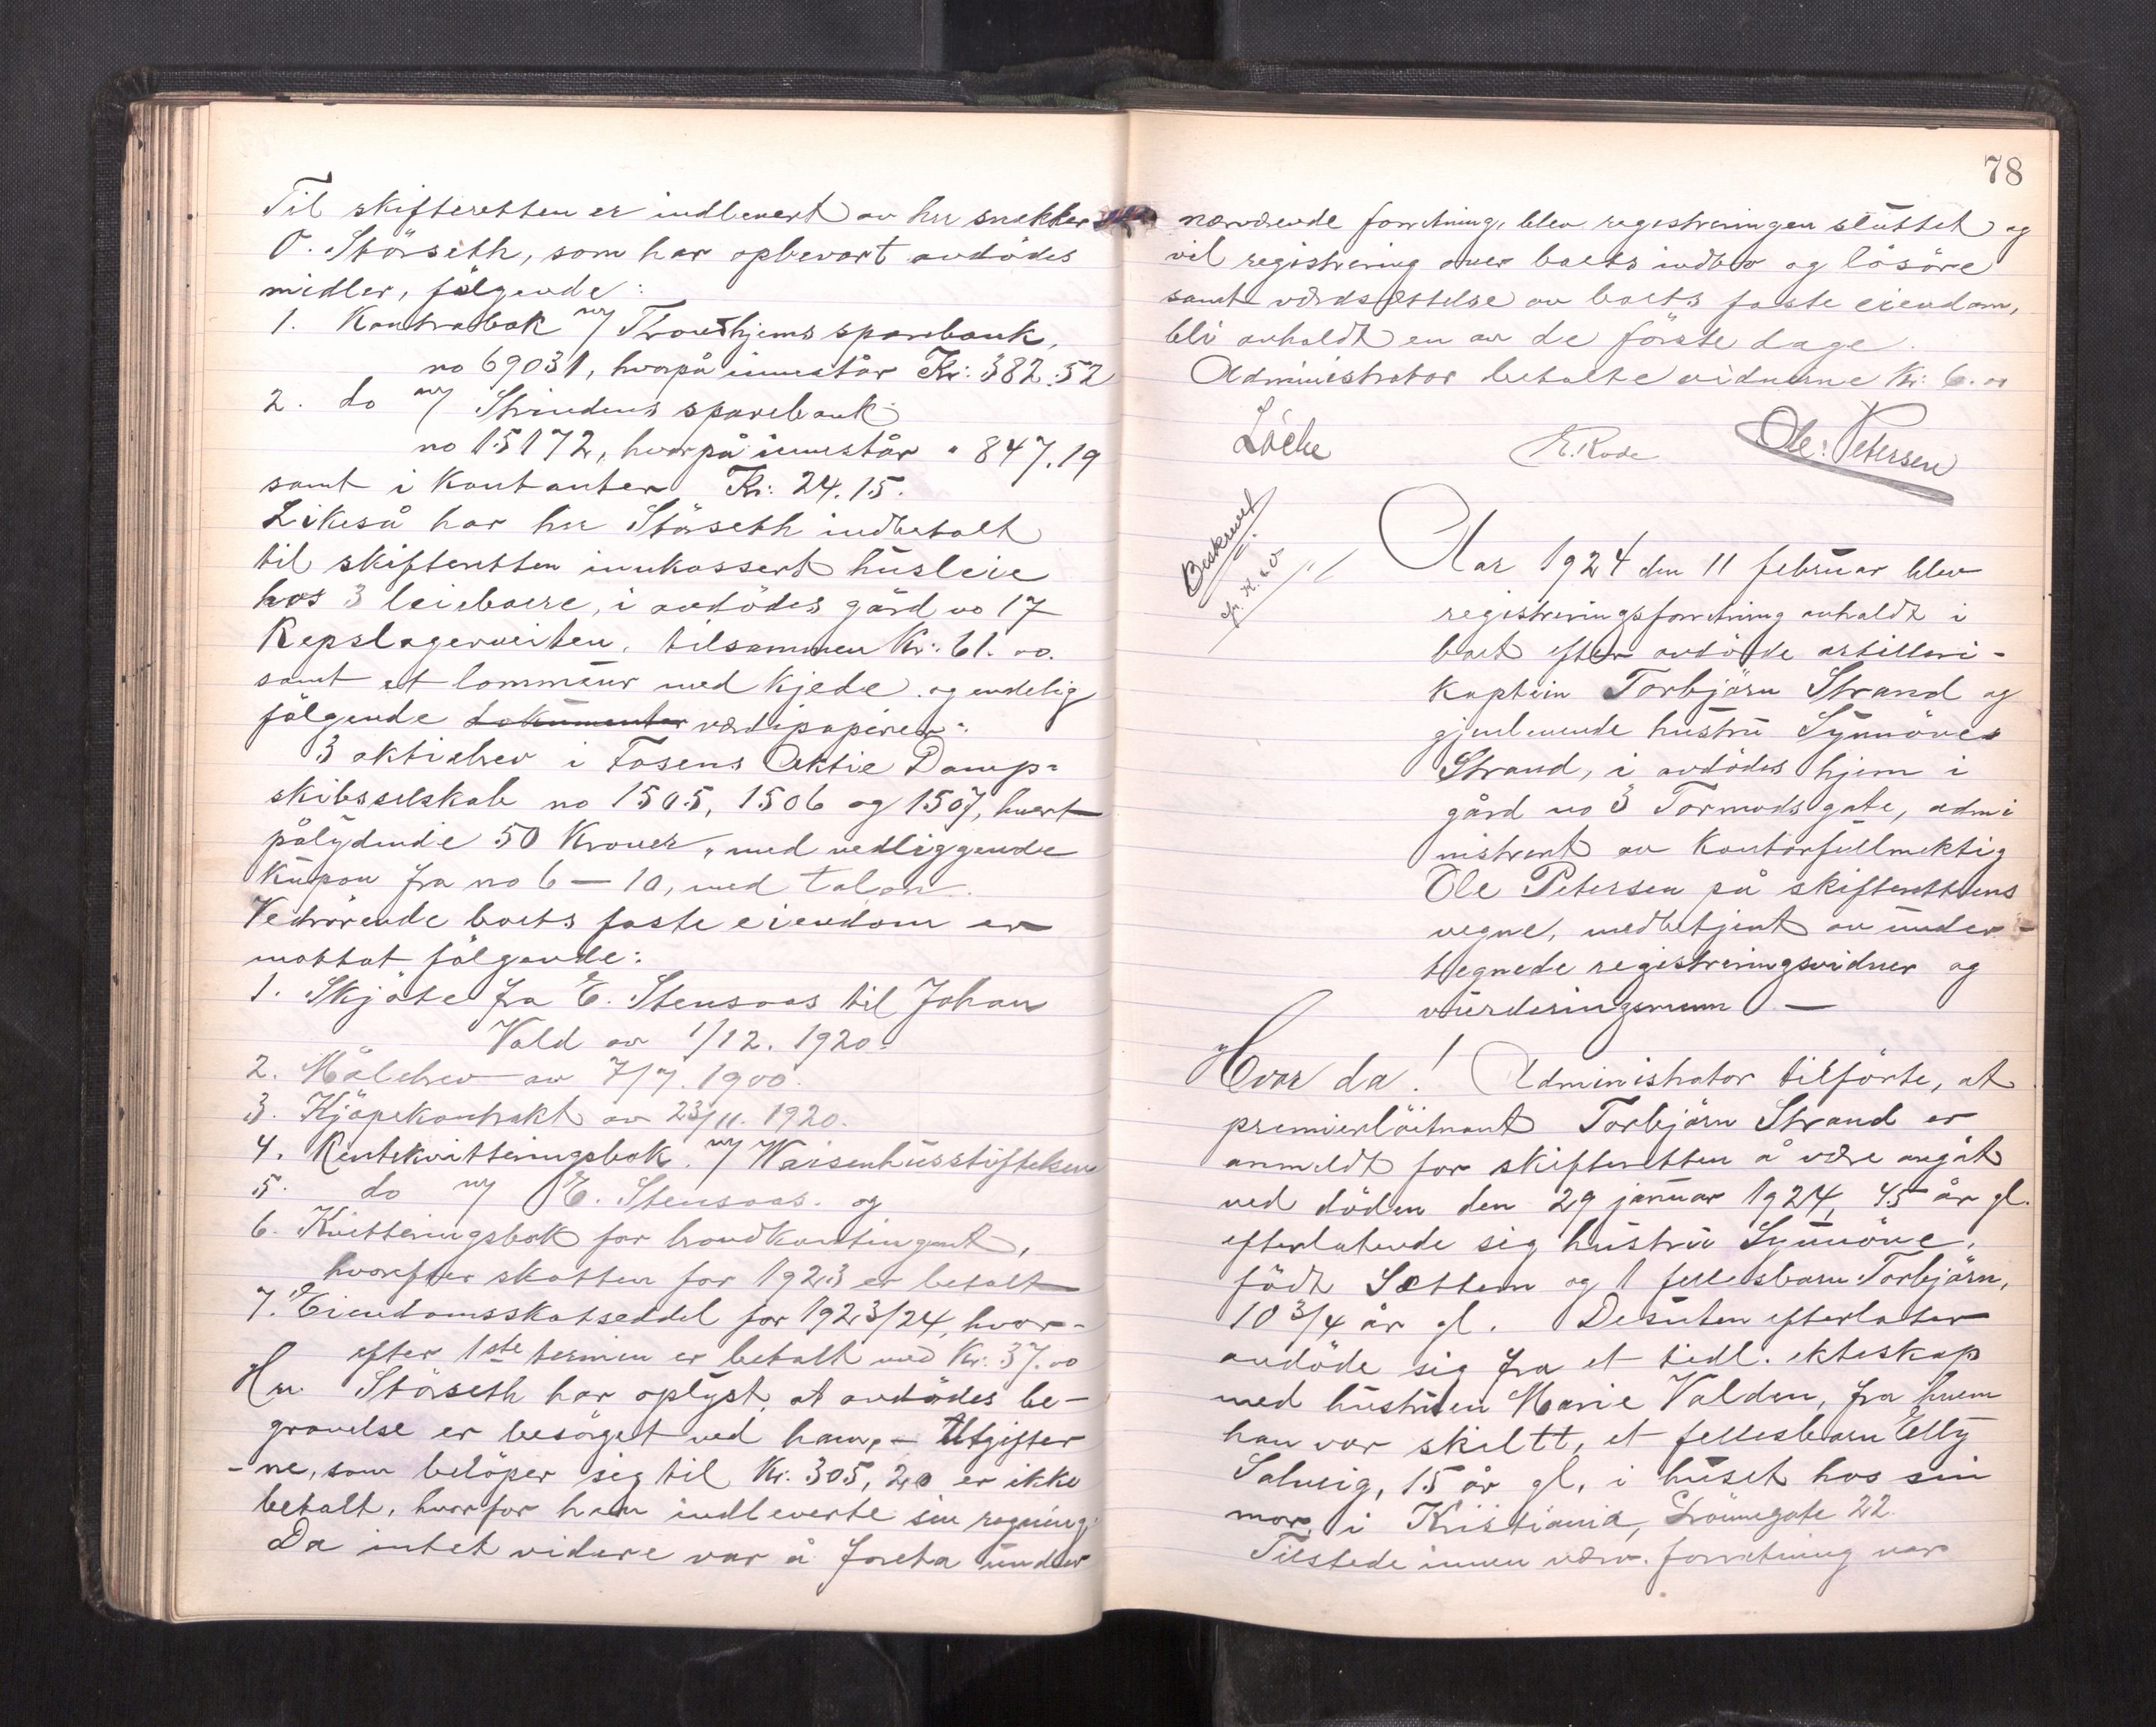 Til skifteretten er indlevert av hr snekker
O. Störseth, som har opbevart avdödes
midler, fölgende:
1. Kontrabok m/ Trondhjems sparebank,
no 69031, hvorpå innestår Kr: 382.52
2. do m/ Strindens sparebank
no 15172, hvorpå innestår " 847.19
samt i Kontanter Kr: 24.15.
Likeså har hr Störseth indbetalt
til skifteretten innkassert husleie
hos 3 leieboere, i avdödes gård no 17
Repslagerveiten, tilsammen Kr: 61.00.
samt et lommeur med Kjede og endelig
fölgende dokumenter verdipapirer:
3 aktiebrev i Fosens Aktie Damp-
skibsselskab no 1505, 1506 og 1507, hvert
pålydende 50 Kroner, med vedliggende
Kupon fra no 6 — 10, med talon.
Vedrörende boets faste eiendom er
mottat fölgende:
1. Skjöte fra E. Stensaas til Johan
Vald av 1/12. 1920.
2. Målebrev av 7/7. 1900.
3. Kjöpekontrakt av 23/11. 1920.
4. Rentekvitteringsbok m/ Waisenhusstiftelsen
5. do m/ E. Stensaas. og
6. Kvitteringsbok for brandkontingent,
hvorefter skatten for 1923 er betalt
7. Eiendomsskatseddel for 1923/24, hvor-
efter 1ste termin er betalt med Kr. 37.00
Hr. Störseth har oplyst, at avdödes be-
gravelse er besörget ved ham, - Utgifter
-ne, som belöper sig til Kr. 305,20 er ikke
betalt, hvorfor han indleverte sin regning.
Da intet videre var å foreta under
78
nærværende forretning, blev registreringen sluttet og
vil registrering over boets indbo og lösöre
samt verdsættelse av boets faste eiendom,
bli avholdt en av de förste dage.
Administrator betalte vidnerne Kr: 6.00
Löche R. Rode Ole: Petersen
Beskrevet
Aar 1924 den 11 februar blev
registreringsforretning avholdt i
boet efter avdöde artilleri-
Kaptein Torbjörn Strand og
gjenlevende hustru Synnöve
Strand, i avdödes hjem i
gård no 3 Tormods gate, admi
nistrert av Kontorfullmektig
Ole Petersen på skifterettens
vegne, medbetjent av under-
tegnede registreringsvidner og
vurderingsmenn —
Hvor da! Administrator tilförte, at
premierlöitnant Torbjörn Strand er
anmeldt for skifteretten å være avgåt
ved döden den 29 januar 1924, 45 år gl.
efterlatende sig hustru Synnöve,
födt Sættem og 1 fellesbarn Torbjörn,
10 3/4 år gl. Desuten efterlater
avdöde sig fra et tidl. ekteskap
med hustruen Marie Valden, fra hvem
han var skiltt, et fellesbarn Elly
Solveig, 15 år gl. i huset hos sin
mor, i Kristiania, gate 22.
Tilstede innen nærv. forretning var